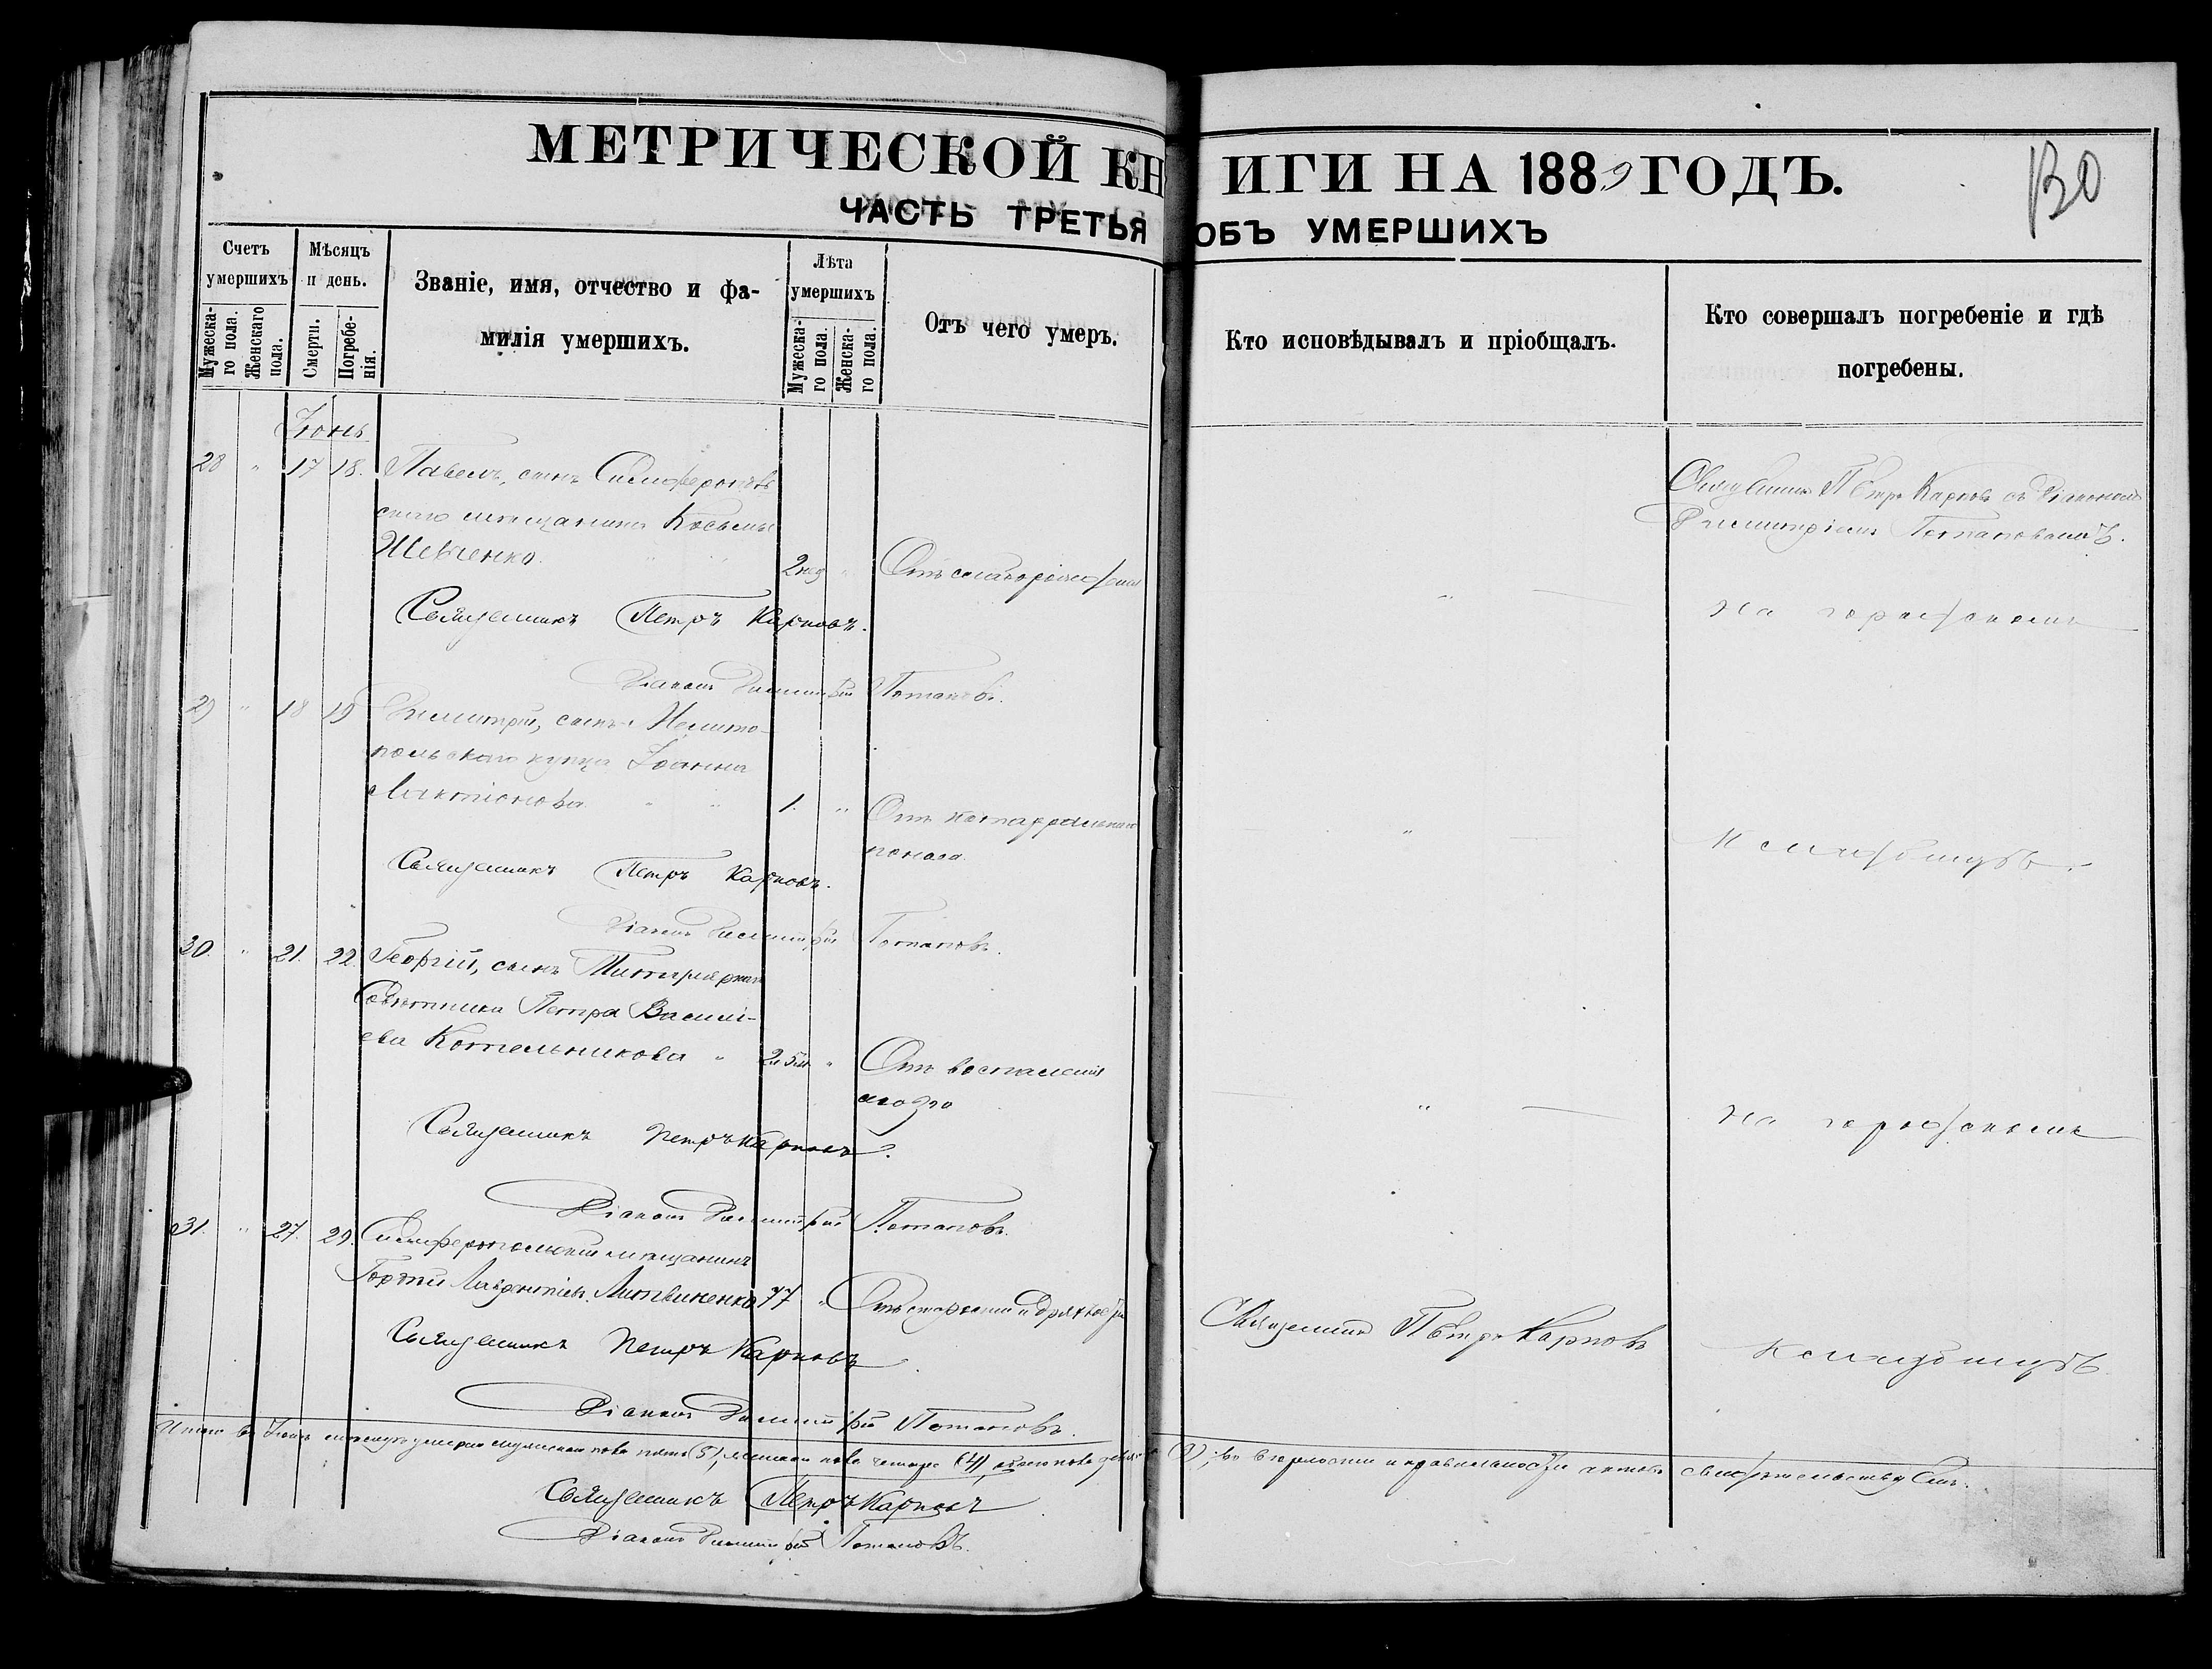 МЕТРИЧЕСКОЙ КНИГИ НА 1889 ГОДЪ.
130
ЧАСТЬ ТРЕТЬЯ ОБЪ УМЕРШИХЪ
Счетъ умершихъ
Мужеска-го пола.
Женскаго пола.
Мѣсяцъ и день.
Смерти.
Погребе-нія.
Званіе, имя, отчество и фа-
милія умершихъ.
Лѣта умершихъ
Мужеска-го пола.
Женска-го пола.
Отъ чего умеръ.
Кто исповѣдывалъ и пріобщалъ.
Кто совершалъ погребеніе и гдѣ
погребены.
Іюнь
28 " 17 18. Павелъ, сынъ Симферополь
скаго мѣщанина Косьмы
Шевченко. 2 нед " Отъ слаборожденія
Священникъ Петръ Карповъ съ Діакономъ
Димитріемъ Потаповымъ.
На городскомъ
Священникъ Петръ Карповъ.
Діаконъ Димитрій Потаповъ.
29 " 18 19 Димитрій, сынъ Мелито-
польскаго купца Іоанна
1. " Отъ катарральнаго
поноса.
кладбищѣ.
Священникъ Петръ Карповъ.
Діаконъ Димитрій Потаповъ.
30. " 21. 22. Георгій, сынъ Титулярнаго
Совѣтника Петра Василі-
ева Котельникова " " Отъ воспаленія
На городскомъ
Священникъ Петръ Карповъ.
Діаконъ Димитрій Потаповъ.
31. " 27. 29. Симферопольскій мѣщанинъ
Гордѣй Лаврентіевъ Литвиненко 77 " Отъ старости и дряхлости
Священникъ Петръ Карповъ
кладбищѣ
Священникъ Петръ Карповъ.
Діаконъ Димитрій Потаповъ.
Итого въ Іюнѣ мѣсяцѣ умерло мужескаго пола пять (5), женскаго пола четыре (4), обоего пола девять (9); въ вѣрности и правильности актовъ свидѣтельствуемъ.
Священникъ Петръ Карповъ
Діаконъ Димитрій Потаповъ.